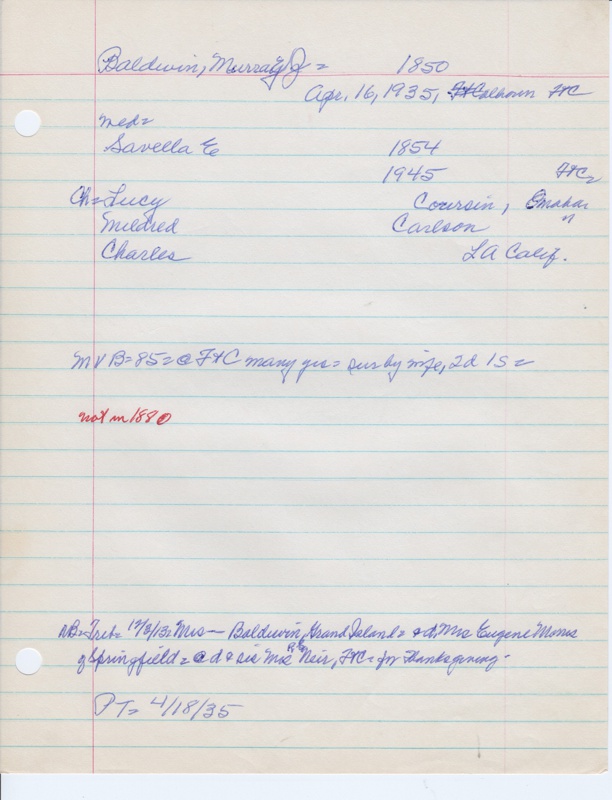 Baldwin, Murray J = 1850
Apr. 16, 1935, Calhoun FtC
med=
Savella E 1854
1945 FtC=
Ch= Lucy Coursin, Omaha
Mildred Carlson
Charles LA Calif.
M V B=85=@ FtC many yrs= sur by wife, 2d 1S=
not in 1880
NB= Trib= 12/3/13= Mrs — Baldwin, Grand Island= & d, Mrs Eugene
of Springfield= @ d & sis Mrs Neir, FtC= for Thanksgiving-
PT= 4/18/35